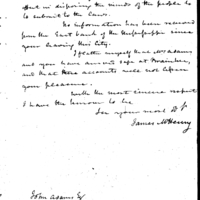 effect in disposing the minds of the people to
to submit to the Laws.
No information has been received
from the East bank of the Mississippi since
your leaving this City.
I flatter myself that Mrs Adams
and you have arrived safe at Braintree,
and that these accounts will not lessen
your pleasure.
With the most sincere respect
I have the honour to be
Sir your most
James McHenry
John Adams